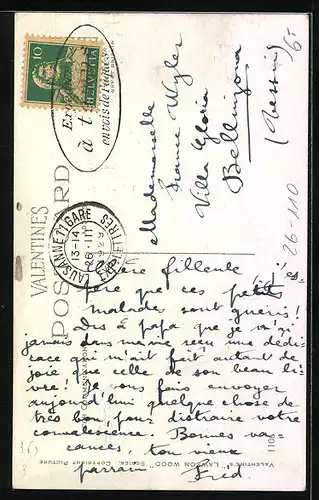 10
HELVETIA
à t
envois de Pâques
VALENTINE'S
POST CARD
LAUSANNE 1 GARE
13-14
26 III
1929
Mademoiselle
France Wyler
Villa Gloria
Bellinzona
(Tessin)
6.-
26-110
Chère filleule j'es-
père que ces petits
malades sont guéris!
Dis à papa que je n'ai
jamais dans ma vie reçu une dédi-
cace qui m'ait fait autant de
joie que celle de son beau li-
vre! Je vous fais envoyer
aujourd'hui quelque chose de
très bon, pour distraire votre
convalescence. Bonnes va-
cances, ton vieux
parrain Fréd.
1108
VALENTINE'S "LAWSON WOOD" SERIES. COPYRIGHT PICTURE